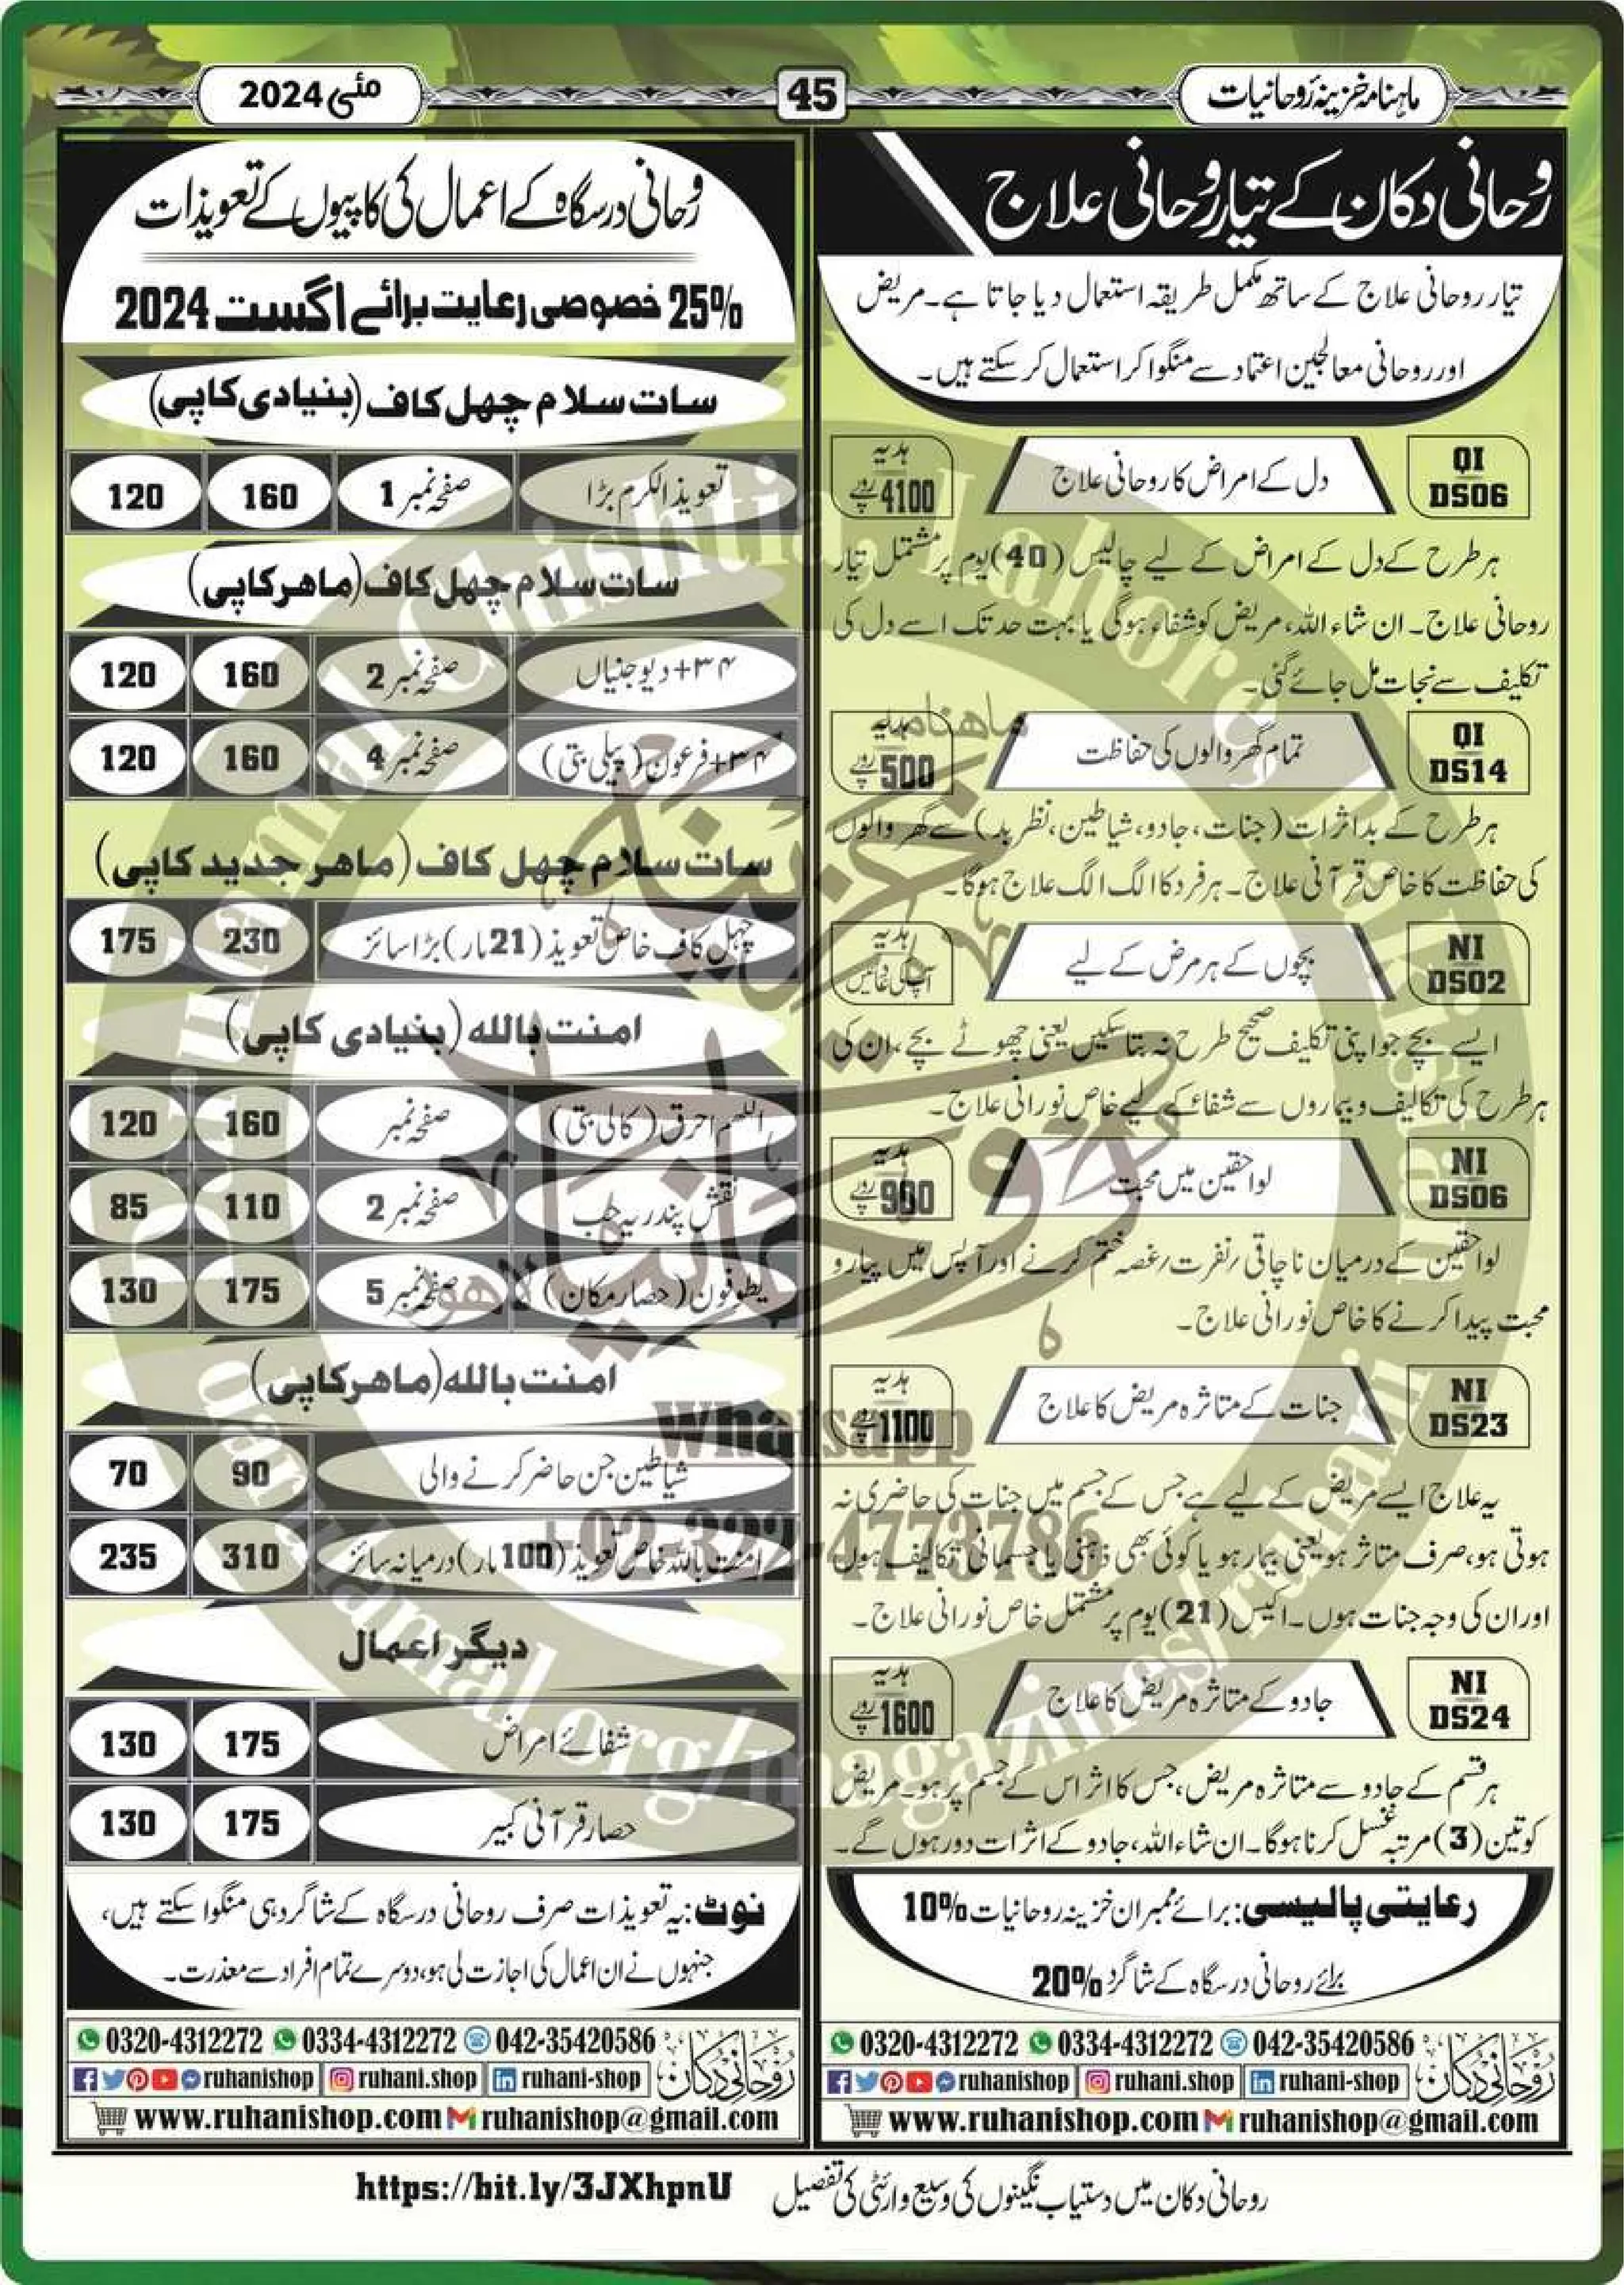 ماہنامہ خزینہ رُوحانیات
45
مئی 2024
رُوحانی دکان کے تیار رُوحانی علاج
تیار روحانی علاج کے ساتھ مکمل طریقہ استعمال دیا جاتا ہے۔ مریض
اور روحانی معالجین اعتماد سے منگوا کر استعمال کر سکتے ہیں۔
QI DS06
دل کے امراض کا روحانی علاج
ہدیہ 4100 روپے
ہر طرح کے دل کے امراض کے لیے چالیس (40) یوم پر مشتمل تیار
روحانی علاج۔ ان شاء اللہ، مریض کو شفاء ہوگی یا بہت حد تک اسے دل کی
تکلیف سے نجات مل جائے گئی۔
QI DS14
تمام گھر والوں کی حفاظت
ہدیہ 500 روپے
ہر طرح کے بداثرات (جنات، جادو، شیاطین، نظر بد) سے گھر والوں
کی حفاظت کا خاص قرآنی علاج۔ ہر فرد کا الگ الگ علاج ہوگا۔
NI DS02
بچوں کے ہر مرض کے لیے
ہدیہ آپ کی دعائیں
ایسے بچے جو اپنی تکلیف صحیح طرح نہ بتا سکیں یعنی چھوٹے بچے، ان کی
ہر طرح کی تکالیف و بیماروں سے شفاء کے لیے خاص نورانی علاج۔
NI DS06
لواحقین میں محبت
ہدیہ 900 روپے
لواحقین کے درمیان ناچاقی/نفرت/غصہ ختم کرنے اور آپس میں پیار و
محبت پیدا کرنے کا خاص نورانی علاج۔
NI DS23
جنات کے متاثرہ مریض کا علاج
ہدیہ 1100 روپے
یہ علاج ایسے مریض کے لیے ہے جس کے جسم میں جنات کی حاضری نہ
ہوتی ہو، صرف متاثر ہو یعنی بیمار ہو یا کوئی بھی ذہنی یا جسمانی تکالیف ہوں
اور ان کی وجہ جنات ہوں۔ اکیس (21) یوم پر مشتمل خاص نورانی علاج۔
NI DS24
جادو کے متاثرہ مریض کا علاج
ہدیہ 1600 روپے
ہر قسم کے جادو سے متاثرہ مریض، جس کا اثر اس کے جسم پر ہو۔ مریض
کو تین (3) مرتبہ غسل کرنا ہوگا۔ ان شاء اللہ، جادو کے اثرات دور ہوں گے۔
رعایتی پالیسی: برائے ممبران خزینہ روحانیات 10%
برائے روحانی درسگاہ کے شاگرد 20%
0320-4312272 0334-4312272 042-35420586
ruhanishop ruhani.shop ruhani-shop
روحانی دکان
www.ruhanishop.com ruhanishop@gmail.com
رُوحانی درسگاہ کے اعمال کی کاپیوں کے تعویذات
25% خصوصی رعایت برائے اگست 2024
سات سلام چہل کاف (بنیادی کاپی)
تعویذ الکرم بڑا صفحہ نمبر 1 160 120
سات سلام چہل کاف (ماہر کاپی)
۳۴+دیو جنیاں صفحہ نمبر 2 160 120
۳۴+فرعون (پیلی بتی) صفحہ نمبر 4 160 120
سات سلام چہل کاف (ماہر جدید کاپی)
چہل کاف خاص تعویذ (21 بار) بڑا سائز 230 175
امنت باللہ (بنیادی کاپی)
اللھم احرق (کالی بتی) صفحہ نمبر 160 120
نقش پندریہ حب صفحہ نمبر 2 110 85
یطوفون (حصار مکان) صفحہ نمبر 5 175 130
امنت باللہ (ماہر کاپی)
شیاطین جن حاضر کرنے والی 90 70
امنت باللہ خاص تعویذ (100 بار) درمیانہ سائز 310 235
دیگر اعمال
شفائے امراض 175 130
حصار قرآنی کبیر 175 130
نوٹ: یہ تعویذات صرف روحانی درسگاہ کے شاگرد ہی منگوا سکتے ہیں،
جنہوں نے ان اعمال کی اجازت لی ہو، دوسرے تمام افراد سے معذرت۔
0320-4312272 0334-4312272 042-35420586
ruhanishop ruhani.shop ruhani-shop
روحانی دکان
www.ruhanishop.com ruhanishop@gmail.com
روحانی دکان میں دستیاب نگینوں کی وسیع وارئٹی کی تفصیل https://bit.ly/3JXhpnU
ماھنامہ
خزینہ
روحانیات
لاھور
whatsapp
+92-322-4773786
Chishtia, Lahore, Pakistan
darulamal.org/magazines/ruhani